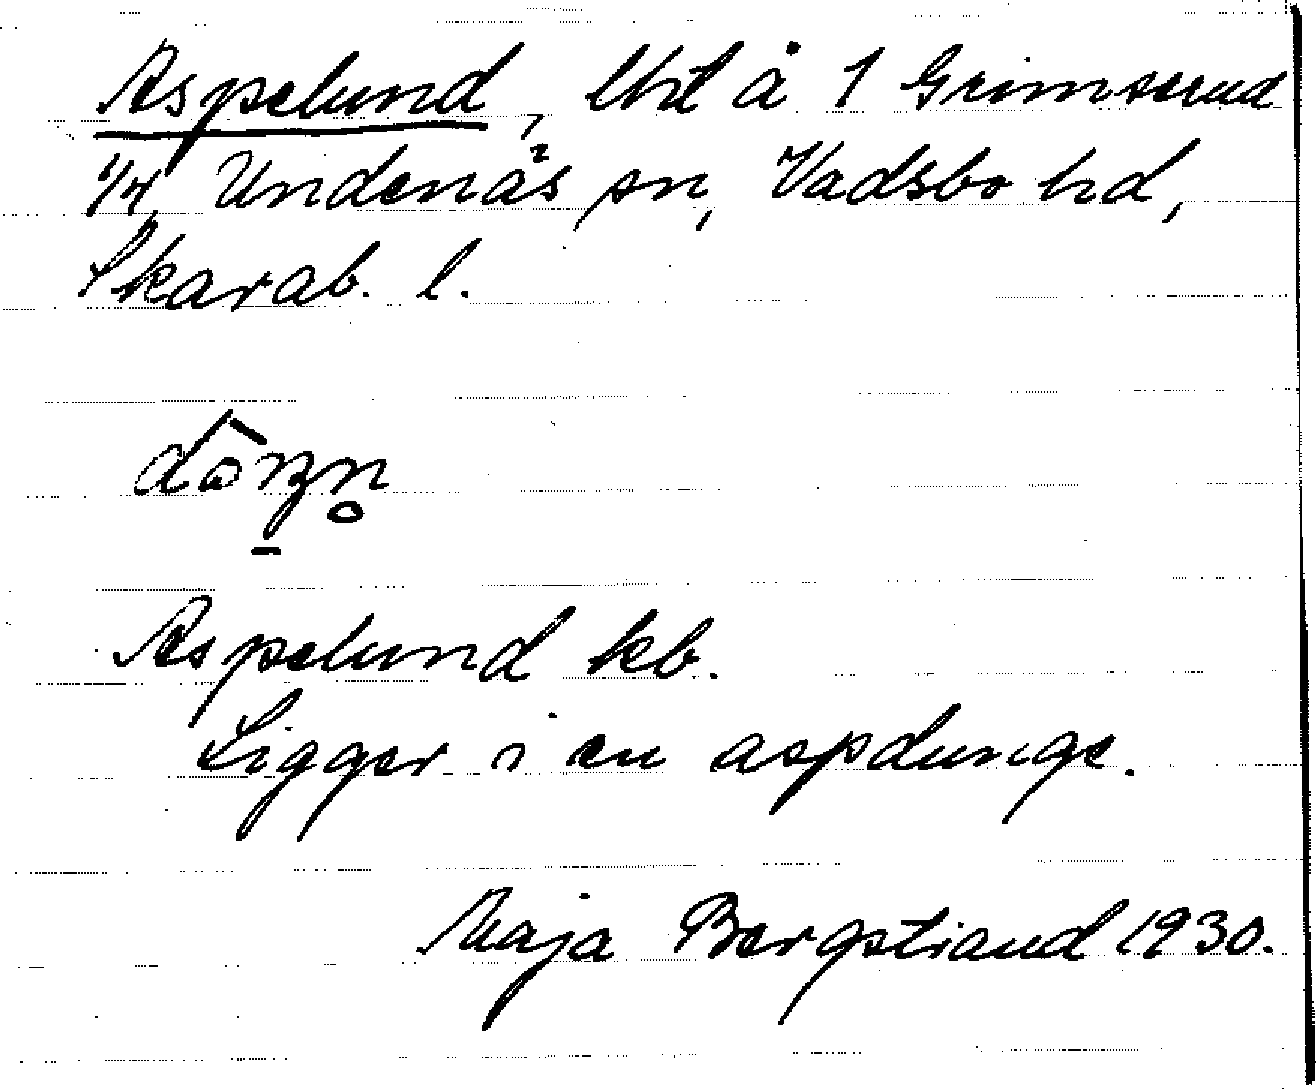 Aspelund, lht å 1 Grimserud
1/4, Undenäs sn, Vadsbo hd,
Skarab. l.
Aspelund kb.
Ligger i en aspdunge.
Maja Bergstrand 1930.